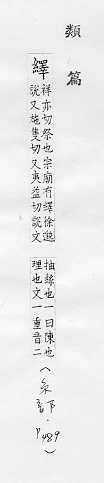 類篇
繹
祥亦切祭也宗廟有繹徐邈
說又施隻切又夷益切說文
抽絲也一曰陳也
理也文一重音二
(糸部下.P489)